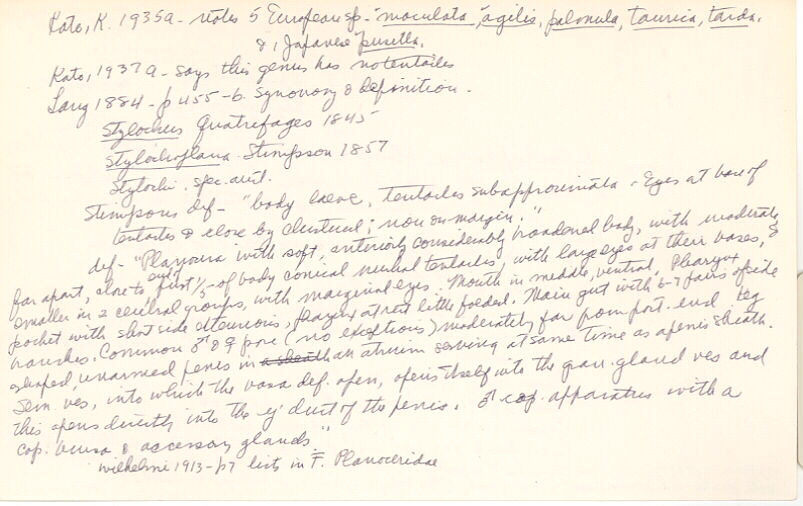 Kato, K. 1935a - notes 5 European sp. - "maculata", agilis, palmula, taurica, tarda,
& 1, Japanese pusilla.
Kato, 1937a - says this genus has no tentacles
Lang 1884 - p 455 - b. Synonomy & definition.
Stylochus Quatrefages 1845
Stylochoplana - Stimpson 1857
Stylochi. spec. auct.
Stimpsons def - "body laeve, tentacles subapproximata - Eyes at base of
tentacles & close by clustered; non on margin."
def - "Planoura with soft, anteriorly considerably broadened body, with moderately
far apart, close to end first 1/5 of body conical neutral tentacles, with large eyes at their bases, &
smaller in 2 central groups, with marginal eyes. Mouth in middle, ventral, Pharynx
pocket with short side extensions, pharynx at rest little folded. Main gut with 6-7 pairs of side
branches. Common ♂ & ♀ pore (no exceptions) moderately far from post. end. Keg
shaped, unarmed penis in an atrium serving at same time as a penis sheath.
Sem. ves, into which the vasa def. open, opens itself into the gran. gland ves and
this opens directly into the ej. duct of the penis. ♂ cop. apparatus with a
cop. bursa & accessory glands"
Wilhelmi 1913 - p7 lists in F. Planoceridae